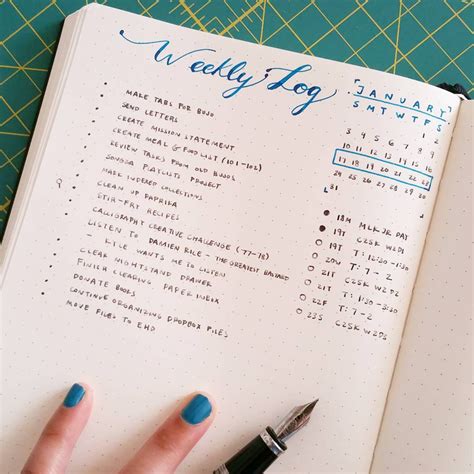 Weekly Log
JANUARY
S M T W T F S
1 2
3 4 5 6 7 8 9
10 11 12 13 14 15 16
17 18 19 20 21 22 23
24 25 26 27 28 29 30
31
MAKE TABS FOR BUJO
SEND LETTERS
CREATE MISSION STATEMENT
CREATE MEAL & FOOD LIST (101-102)
REVIEW TALKS FROM OLD BUJOS
SONOSA PLAYLISTS PROJECT
MAKE INDEXED COLLECTIONS
CLEAN UP PAPRIKA
STIR-FRY RECIPES
CALLIGRAPHY CREATIVE CHALLENGE (77-78)
LISTEN TO DAMIEN RICE - THE GREATEST BASTARD
KYLE WANTS ME TO LISTEN
CLEAR NIGHTSTAND DRAWER
FINISH CLEARING PAPER INBOX
DONATE BOOKS
CONTINUE ORGANIZING DROPBOX FILES
MOVE FILES TO EHD
18M MLK JR DAY
19T C25K W2D1
20W T: 12:30-1:30
21T T: 7-2
21T C25K W2D2
22F T: 7-2
23S C25K W2D3